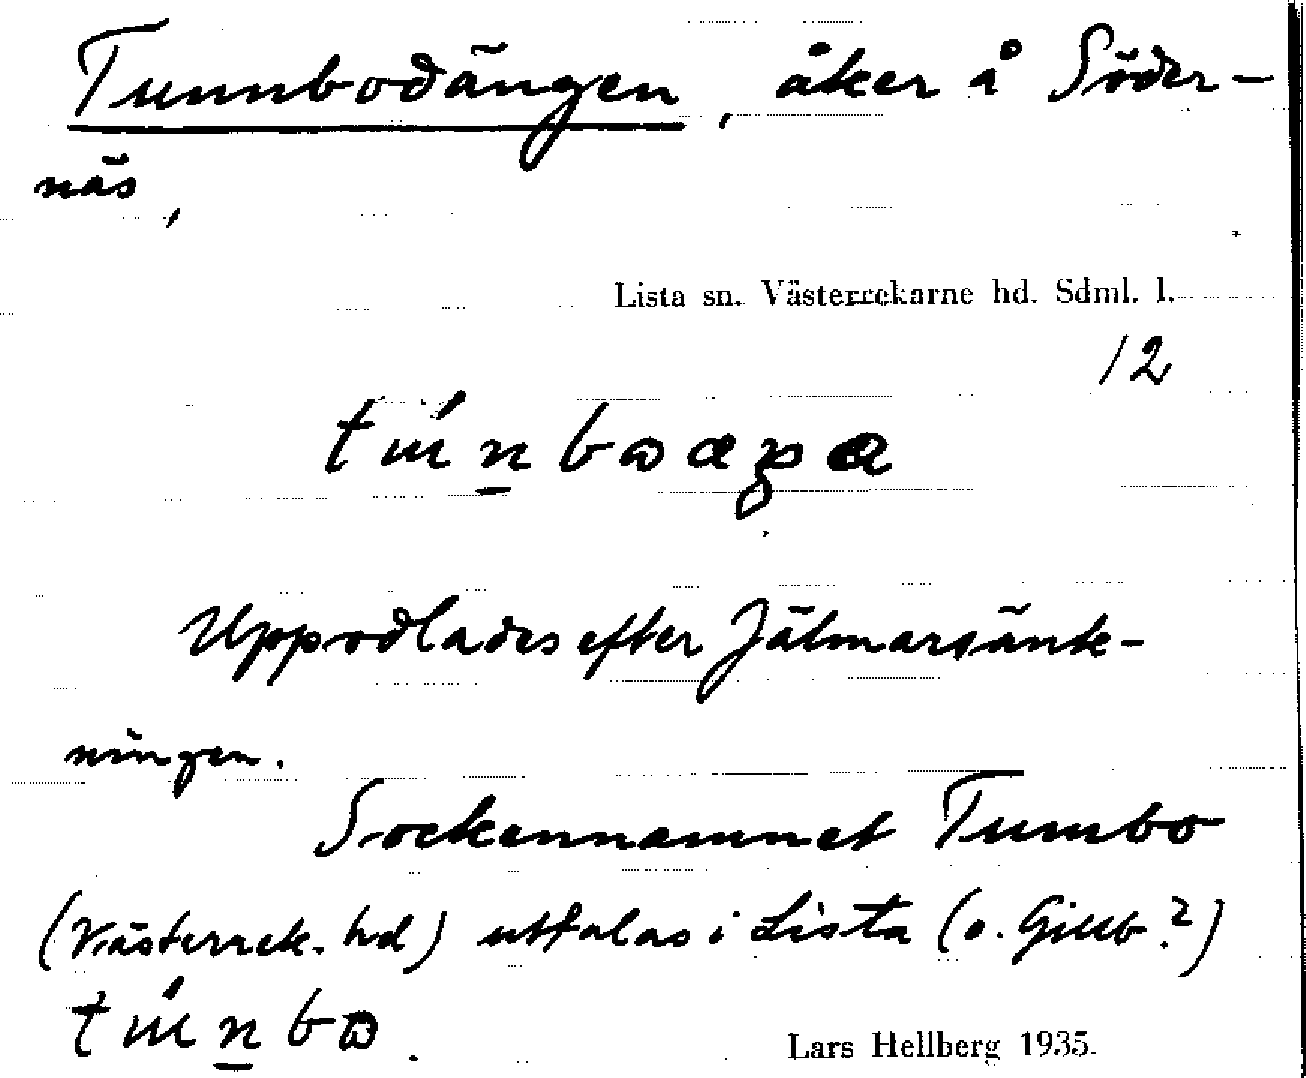 Tunnbodängen, åker å Söder-
näs,
Lista sn. Västerrekarne hd. Sdml. l.
12
Uppodlades efter Jälmarsänk-
ningen.
Sockennamnet Tumbo
(Västerrek. hd) uttalas i Lista (o. Gillb.?)
Lars Hellberg 1935.